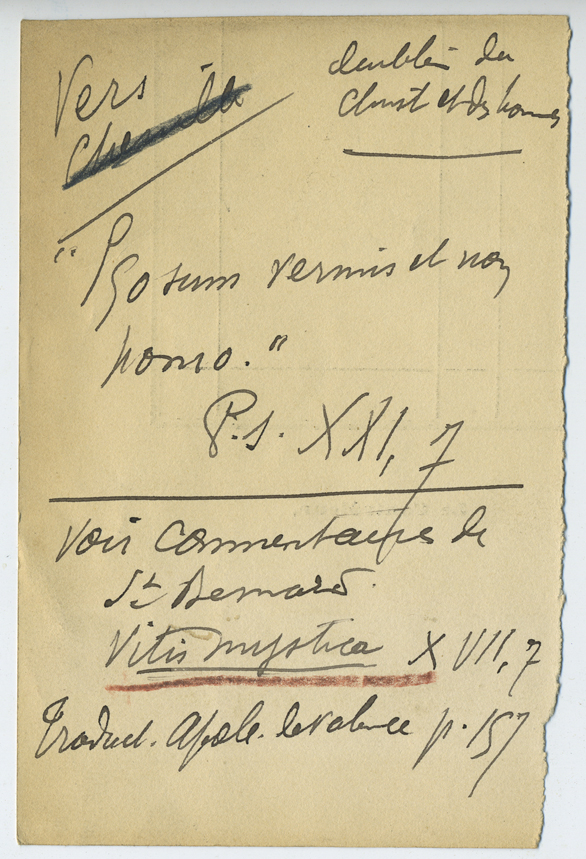 Vers
Chenille
du
Christ et des hommes
"Ego sum vermis et non
homo."
Ps. XXI, 7
Voir Commentaires de
St Bernard
Vitis mystica XVII, 7
Traduct. Apolo. de Valence p. 157